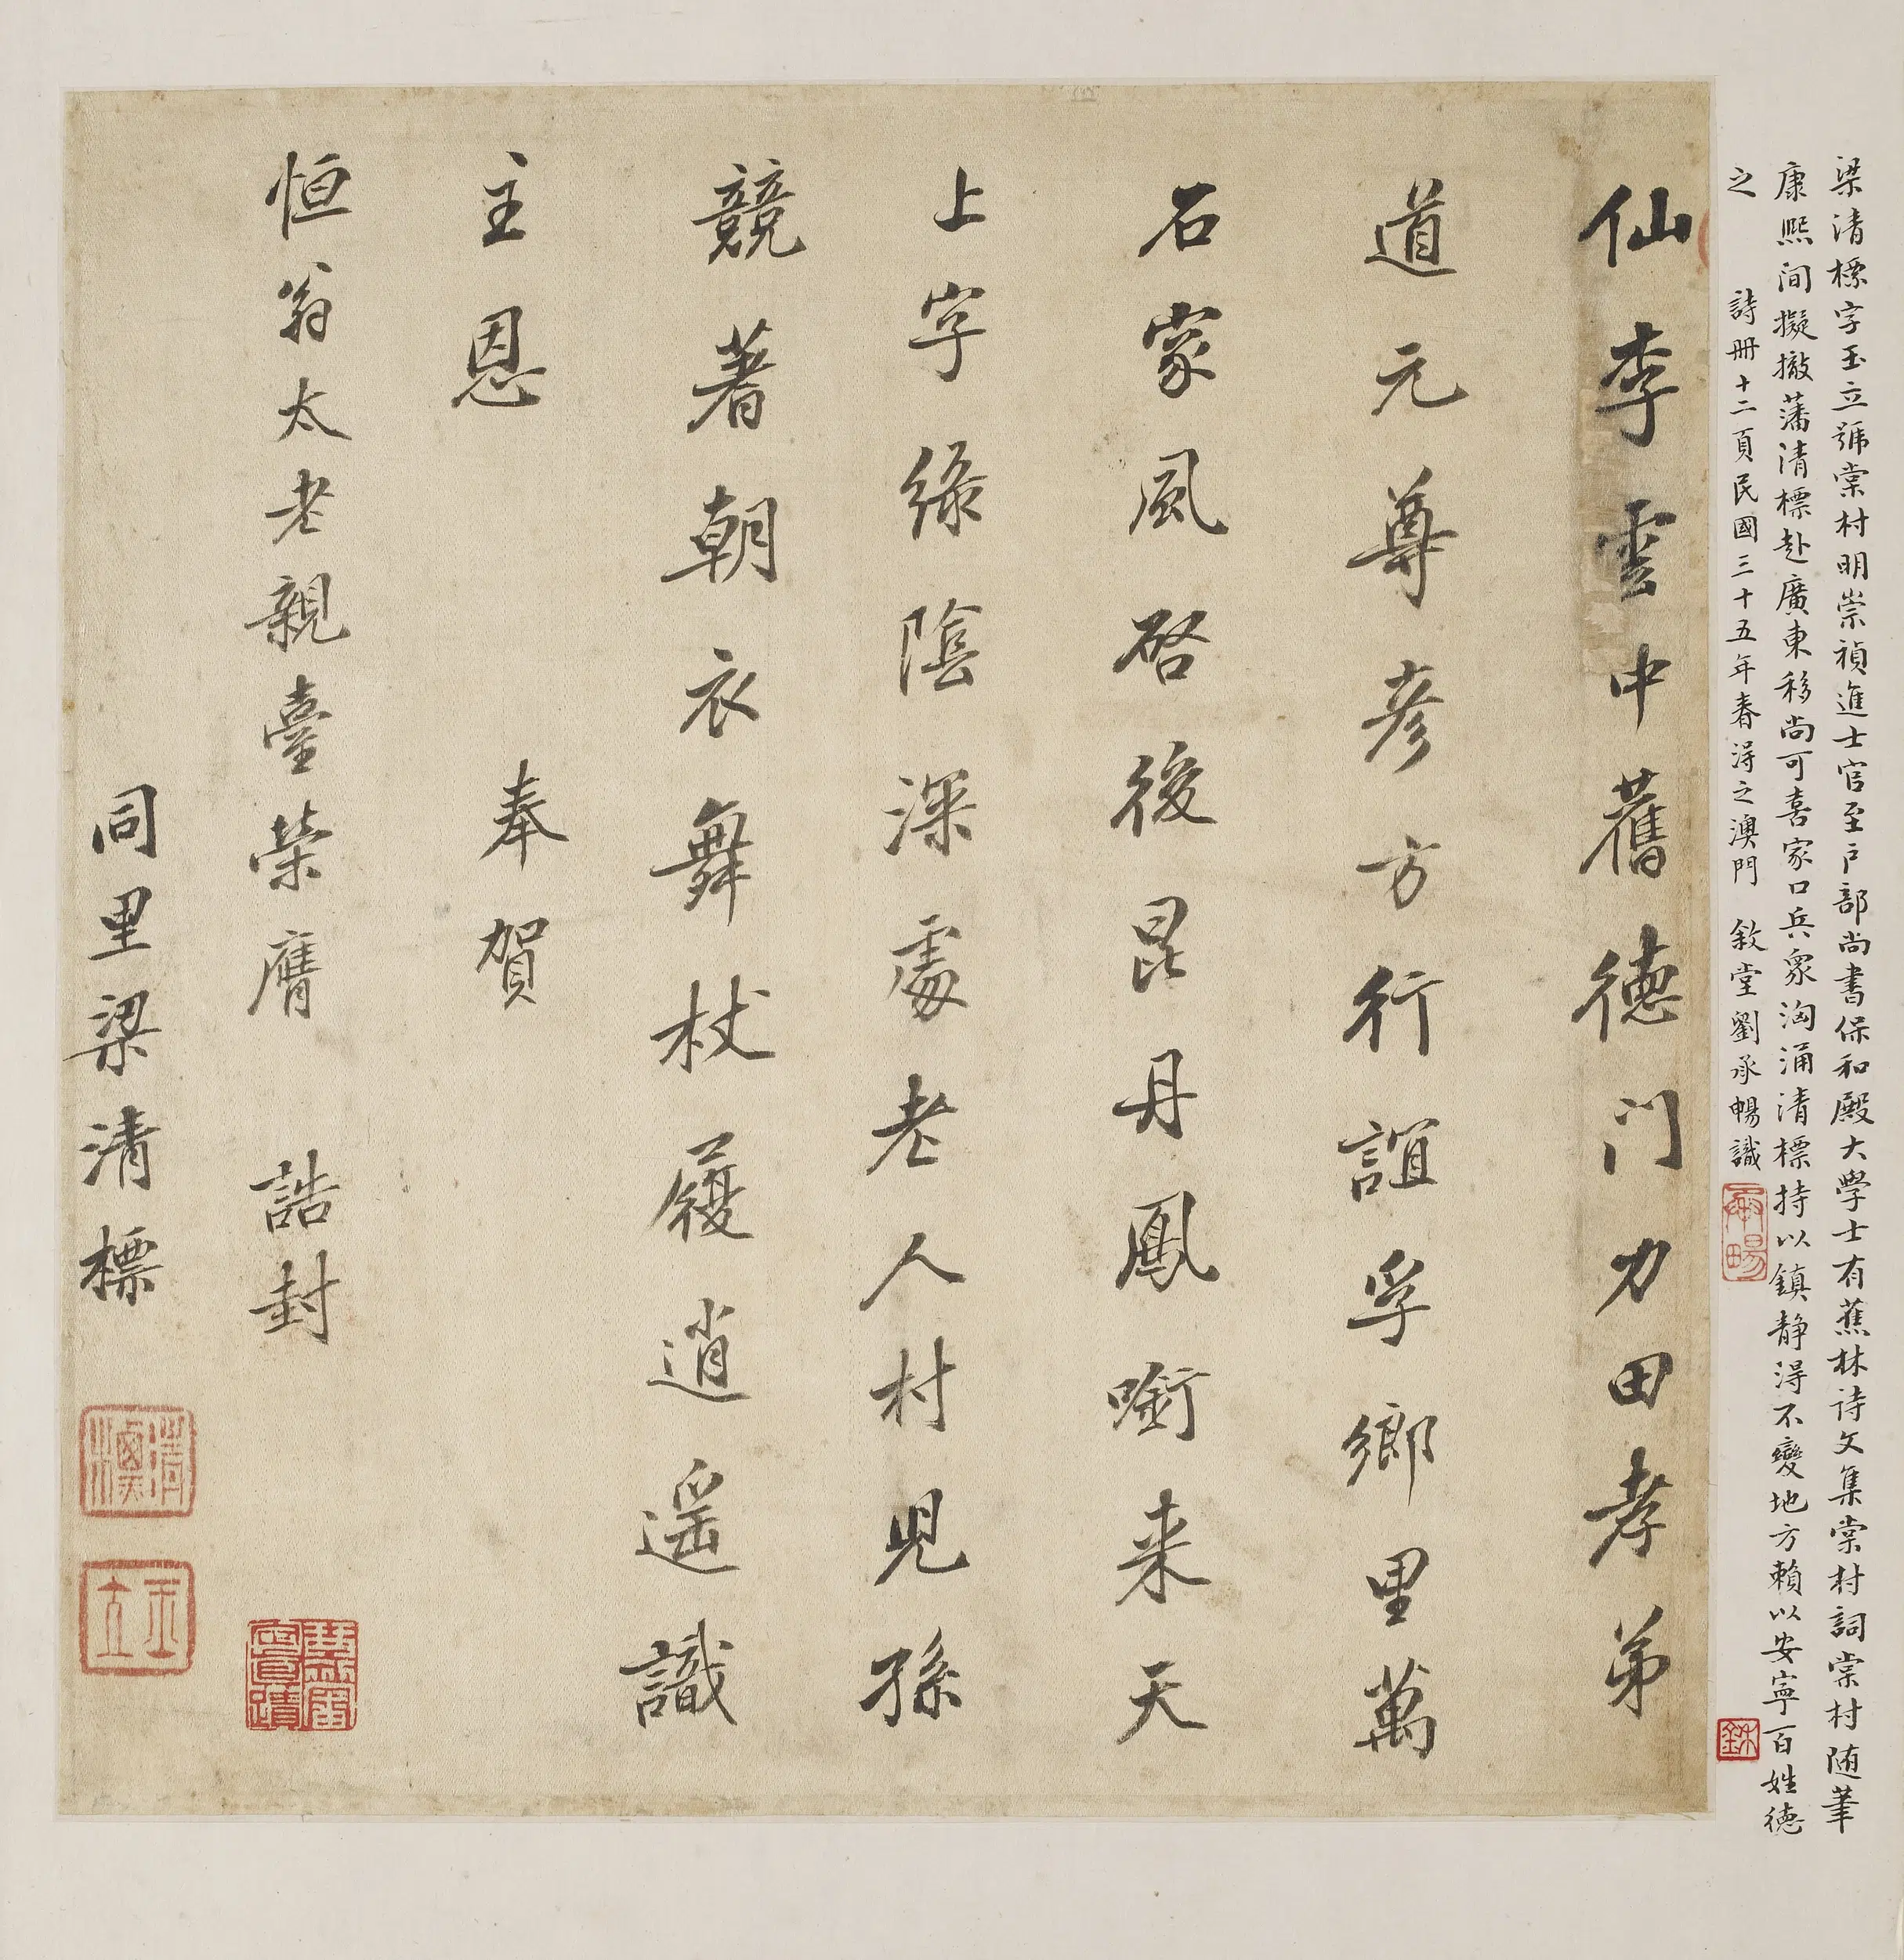 梁清標字玉立號棠村明崇禎進士官至戶部尚書保和殿大學士有蕉林詩文集棠村詞棠村随筆
康熙间擬撤藩清標赴廣東移尚可喜家口兵衆洶涌清標持以鎮靜得不變地方賴以安寧百姓德
之 詩冊十二頁民國三十五年春得之澳門 敘堂劉承暢識
仙李雲中舊德門力田孝弟
道元尊彦方行誼孚鄉里萬
石家風啓後昆丹鳳啣来天
上字綠陰深處老人村児孫
競著朝衣舞杖履逍遥識
主恩
奉賀
恒翁太老親臺榮膺 誥封
同里梁清標
玉立